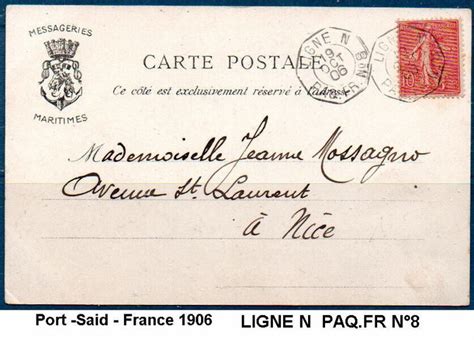 MESSAGERIES
MARITIMES
CARTE POSTALE
Ce côté est exclusivement réservé à l'adresse
LIGNE N
PAQ.FR N°8
LIGNE
10
Mademoiselle Jeanne Mossagno
Avenue St. Laurent
à Nice
Port -Said - France 1906
LIGNE N PAQ.FR N°8